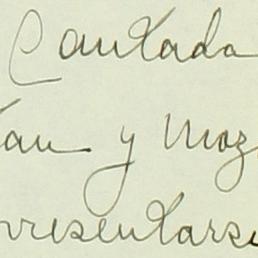 Cantada
tan y Moz
presentarse